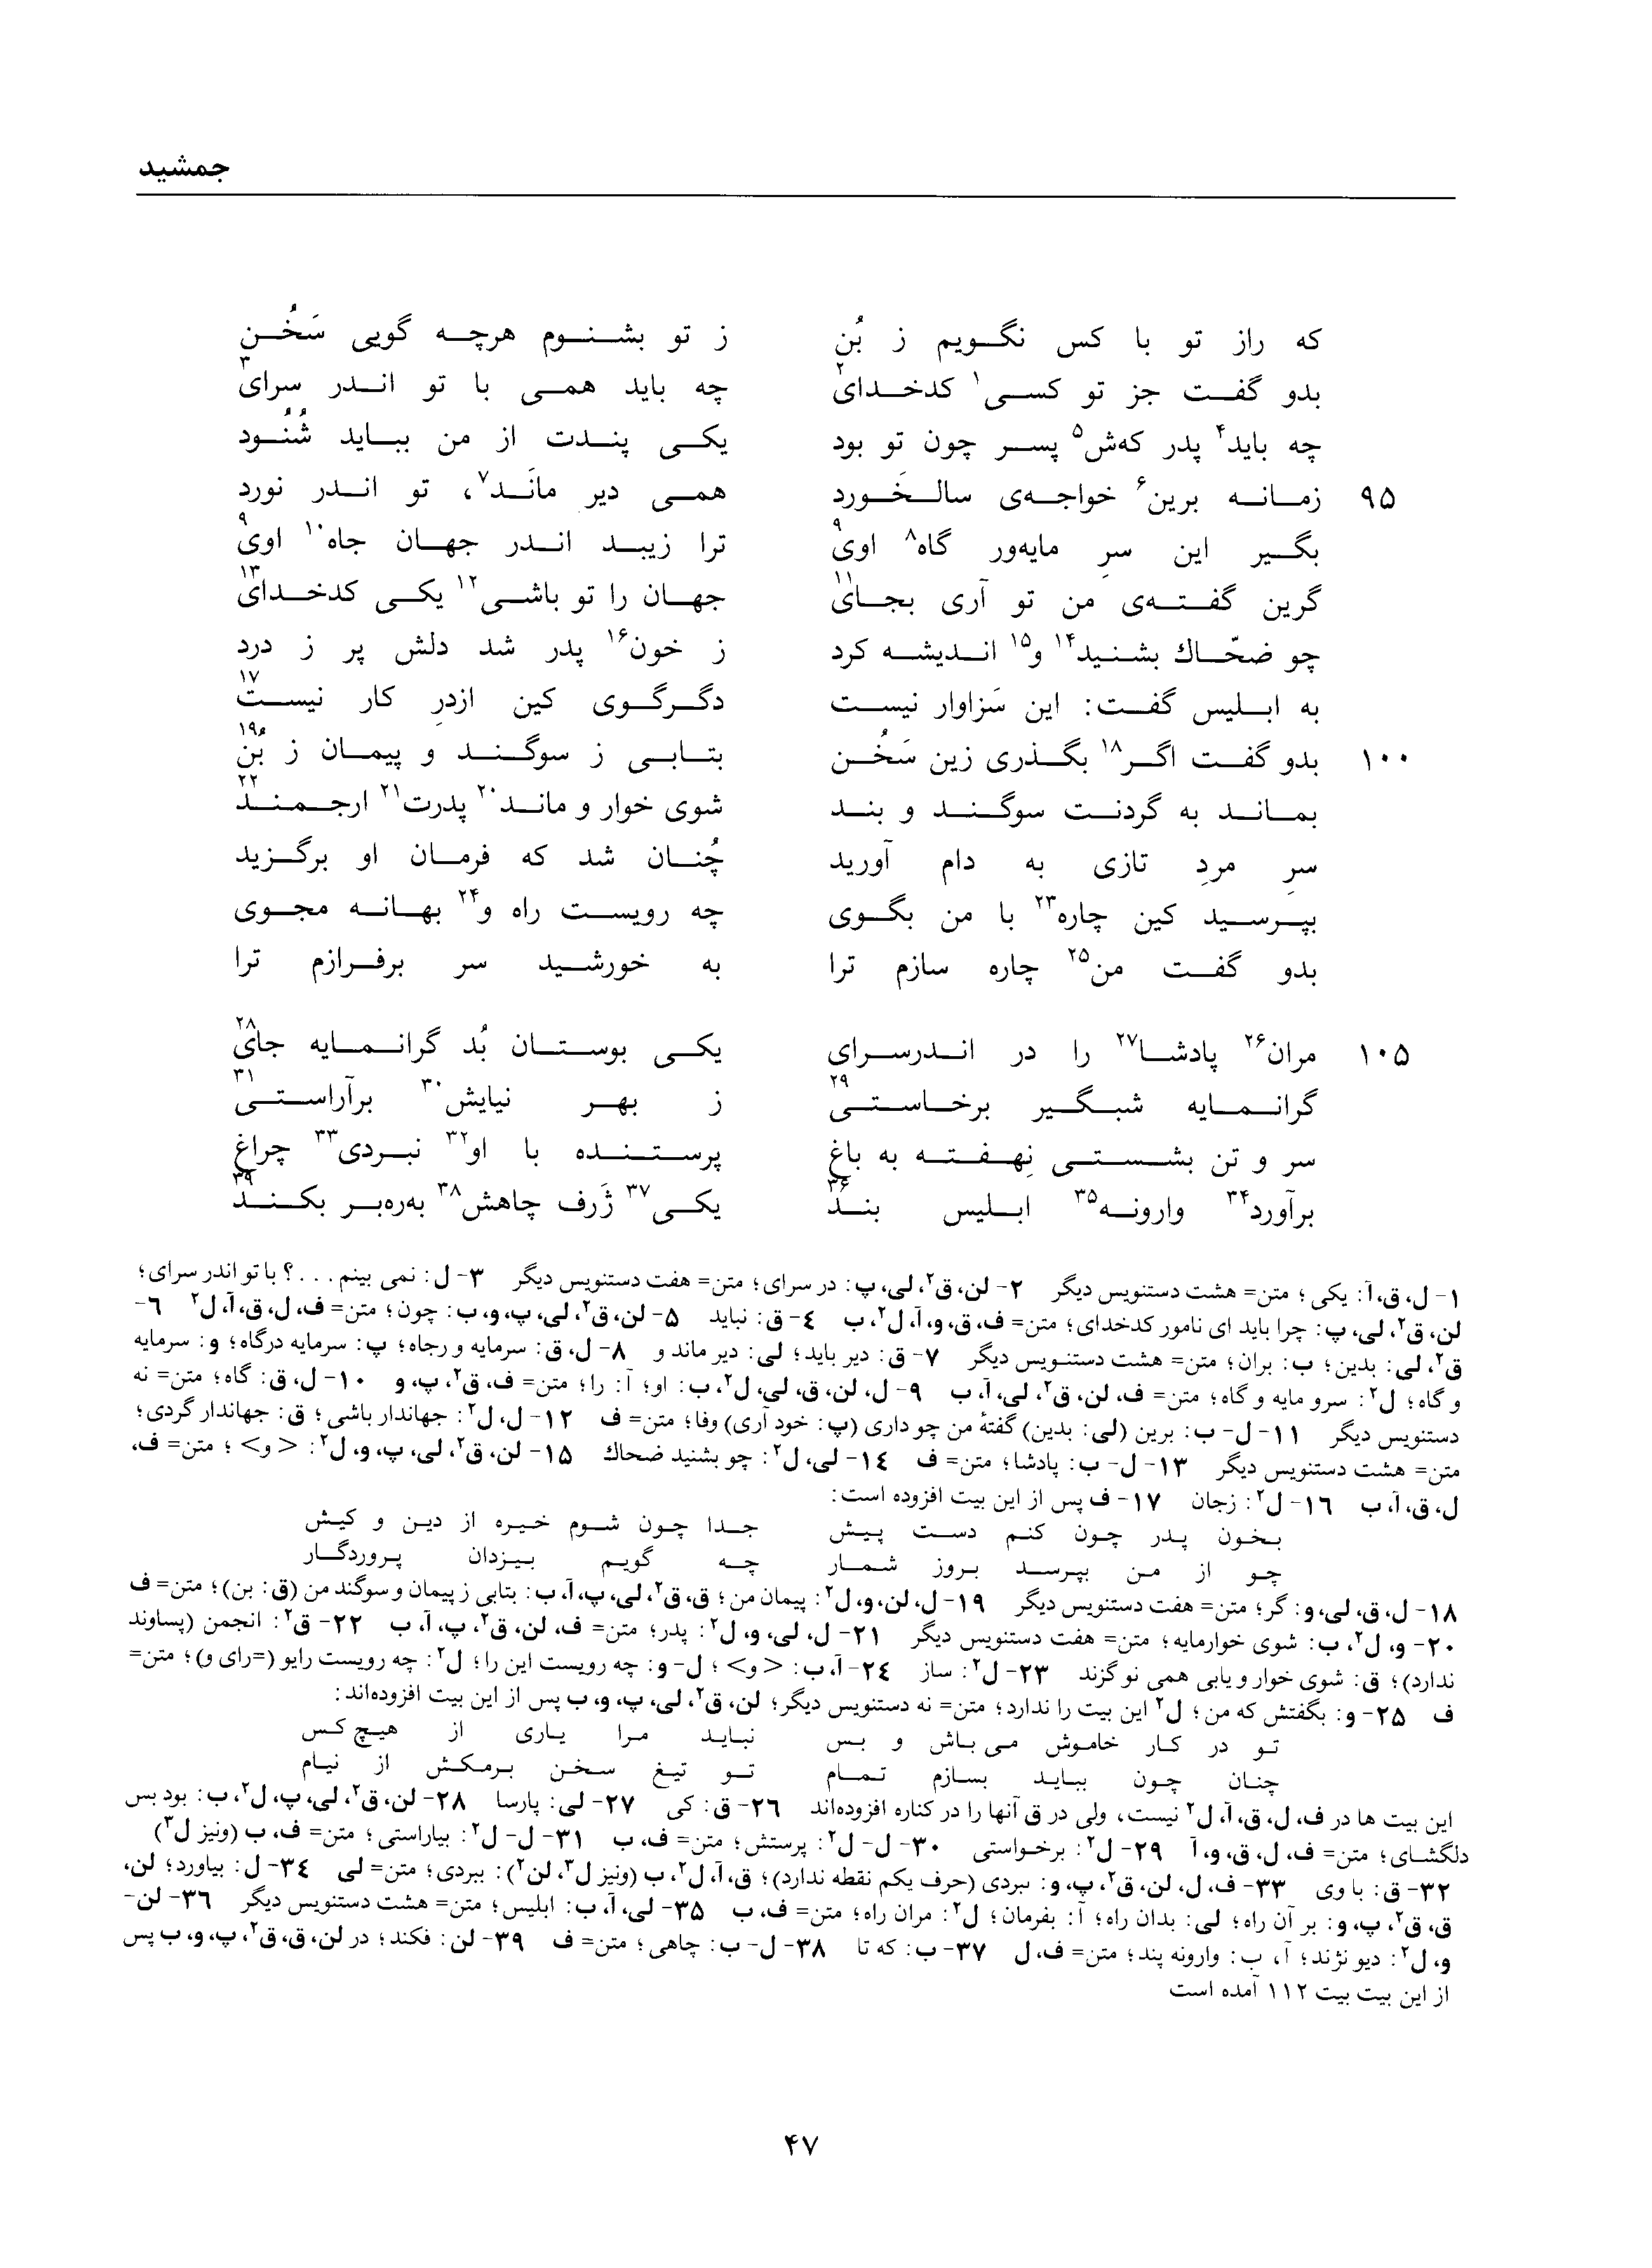 جمشید
که راز تو با کس نگویم ز بُن ز تو بشنوم هرچه گویی سَخُن
بدو گفت جز تو کسی۱ کدخدای۲ چه باید همی با تو اندر سرای۳
چه باید۴ پدر که‌ش۵ پسر چون تو بود یکی پندت از من بباید شُنُود
۹۵ زمانه برین۶ خواجه‌ی سالخَورد همی دیر مانَد۷، تو اندر نورد
بگیر این سرِ مایه‌ور گاه۸ اوی۹ ترا زیبد اندر جهان جاه۱۰ اوی۹
گرین گفته‌ی من تو آری بجای۱۱ جهان را تو باشی۱۲ یکی کدخدای۱۳
چو ضحّاك بشنید۱۴ و۱۵ اندیشه کرد ز خون۱۶ پدر شد دلش پر ز درد
به ابلیس گفت: این سَزاوار نیست دگرگوی کین ازدرِ کار نیست۱۷
۱۰۰ بدو گفت اگر۱۸ بگذری زین سَخُن بتابی ز سوگند و پیمان ز بُن۱۹
بماند به گردنت سوگند و بند شوی خوار و ماند۲۰ پدرت۲۱ ارجمند۲۲
سرِ مردِ تازی به دام آورید چُنان شد که فرمان او برگزید
بپرسید کین چاره۲۳ با من بگوی چه رویست راه و۲۴ بهانه مجوی
بدو گفت من۲۵ چاره سازم ترا به خورشید سر برفرازم ترا
۱۰۵ مران۲۶ پادشا۲۷ را در اندرسرای یکی بوستان بُد گرانمایه جای۲۸
گرانمایه شبگیر برخاستی۲۹ ز بهر نیایش۳۰ برآراستی۳۱
سر و تن بشستی نِهفته به باغ پرستنده با او۳۲ نبردی۳۳ چراغ
برآورد۳۴ وارونه۳۵ ابلیس بند۳۶ یکی۳۷ ژَرف چاهش۳۸ به‌ره‌بر بکند۳۹
۱- ل، ق، آ: یکی؛ متن= هشت دستنویس دیگر ۲- لن، ق۲، لی، پ: در سرای؛ متن= هفت دستنویس دیگر ۳- ل: نمی بینم...؟ با تو اندر سرای؛
لن، ق۲، لی، پ: چرا باید ای نامور کدخدای؛ متن= ف، ق، و، آ، ل۲، ب ۴- ق: نباید ۵- لن، ق۲، لی، پ، و، ب: چون؛ متن= ف، ل، ق، آ، ل۲ ۶-
ق۲، لی: بدین؛ ب: بران؛ متن= هشت دستنویس دیگر ۷- ق: دیر باید؛ لی: دیر ماند و ۸- ل، ق: سرمایه و رجاه؛ پ: سرمایه درگاه؛ و: سرمایه
و گاه؛ ل۲: سرو مایه و گاه؛ متن= ف، لن، ق۲، لی، آ، ب ۹- ل، لن، ق، لی، ل۲، ب: او؛ آ: را؛ متن= ف، ق۲، پ، و ۱۰- ل، ق: گاه؛ متن= نه
دستنویس دیگر ۱۱- ل- ب: برین (لی: بدین) گفتهٔ من چو داری (پ: خود آری) وفا؛ متن= ف ۱۲- ل، ل۲: جهاندار باشی؛ ق: جهاندار گردی؛
متن= هشت دستنویس دیگر ۱۳- ل- ب: پادشا؛ متن= ف ۱۴- لی، ل۲: چو بشنید ضحاك ۱۵- لن، ق۲، لی، پ، و، ل۲: <و>؛ متن= ف،
ل، ق، آ، ب ۱۶- ل۲: زجان ۱۷- ف پس از این بیت افزوده است:
بخون پدر چون کنم دست پیش جدا چون شوم خیره از دین و کیش
چو از من بپرسد بروز شمار چه گویم بیزدان پروردگار
۱۸- ل، ق، لی، و: گر؛ متن= هفت دستنویس دیگر ۱۹- ل، لن، و، ل۲: پیمان من؛ ق، ق۲، لی، پ، آ، ب: بتابی ز پیمان و سوگند من (ق: بن)؛ متن= ف
۲۰- و، ل۲، ب: شوی خوارمایه؛ متن= هفت دستنویس دیگر ۲۱- ل، لی، و، ل۲: پدر؛ متن= ف، لن، ق۲، پ، آ، ب ۲۲- ق۲: انجمن (پساوند
ندارد)؛ ق: شوی خوار و یابی همی نو گزند ۲۳- ل۲: ساز ۲۴- آ، ب: <و>؛ ل- و: چه رویست این را؛ ل۲: چه رویست رایو (=رای و)؛ متن=
ف ۲۵- و: بگفتش که من؛ ل۲ این بیت را ندارد؛ متن= نه دستنویس دیگر؛ لن، ق۲، لی، پ، و، ب پس از این بیت افزوده‌اند:
تو در کار خاموش می باش و بس نباید مرا یاری از هیچ کس
چنان چون بباید بسازم تمام تو تیغ سخن برمکش از نیام
این بیت ها در ف، ل، ق، آ، ل۲ نیست، ولی در ق آنها را در کناره افزوده‌اند ۲۶- ق: کی ۲۷- لی: پارسا ۲۸- لن، ق۲، لی، پ، ل۲، ب: بود بس
دلگشای؛ متن= ف، ل، ق، و، آ ۲۹- ل۲: برخواستی ۳۰- ل- ل۲: پرستش؛ متن= ف، ب ۳۱- ل- ل۲: بیاراستی؛ متن= ف، ب (ونیز ل۳)
۳۲- ق: با وی ۳۳- ف، ل، لن، ق۲، پ، و: ٮبردی (حرف یکم نقطه ندارد)؛ ق، آ، ل۲، ب (ونیز ل۳، لن۲): ببردی؛ متن= لی ۳۴- ل: بیاورد؛ لن،
ق، ق۲، پ، و: بر آن راه؛ لی: بدان راه؛ آ: بفرمان؛ ل۲: مران راه؛ متن= ف، ب ۳۵- لی، آ، ب: ابلیس؛ متن= هشت دستنویس دیگر ۳۶- لن-
و، ل۲: دیو نژند؛ آ، ب: وارونه پند؛ متن= ف، ل ۳۷- ب: که تا ۳۸- ل- ب: چاهی؛ متن= ف ۳۹- لن: فکند؛ در لن، ق، ق۲، پ، و، ب پس
از این بیت بیت ۱۱۲ آمده است
۴۷